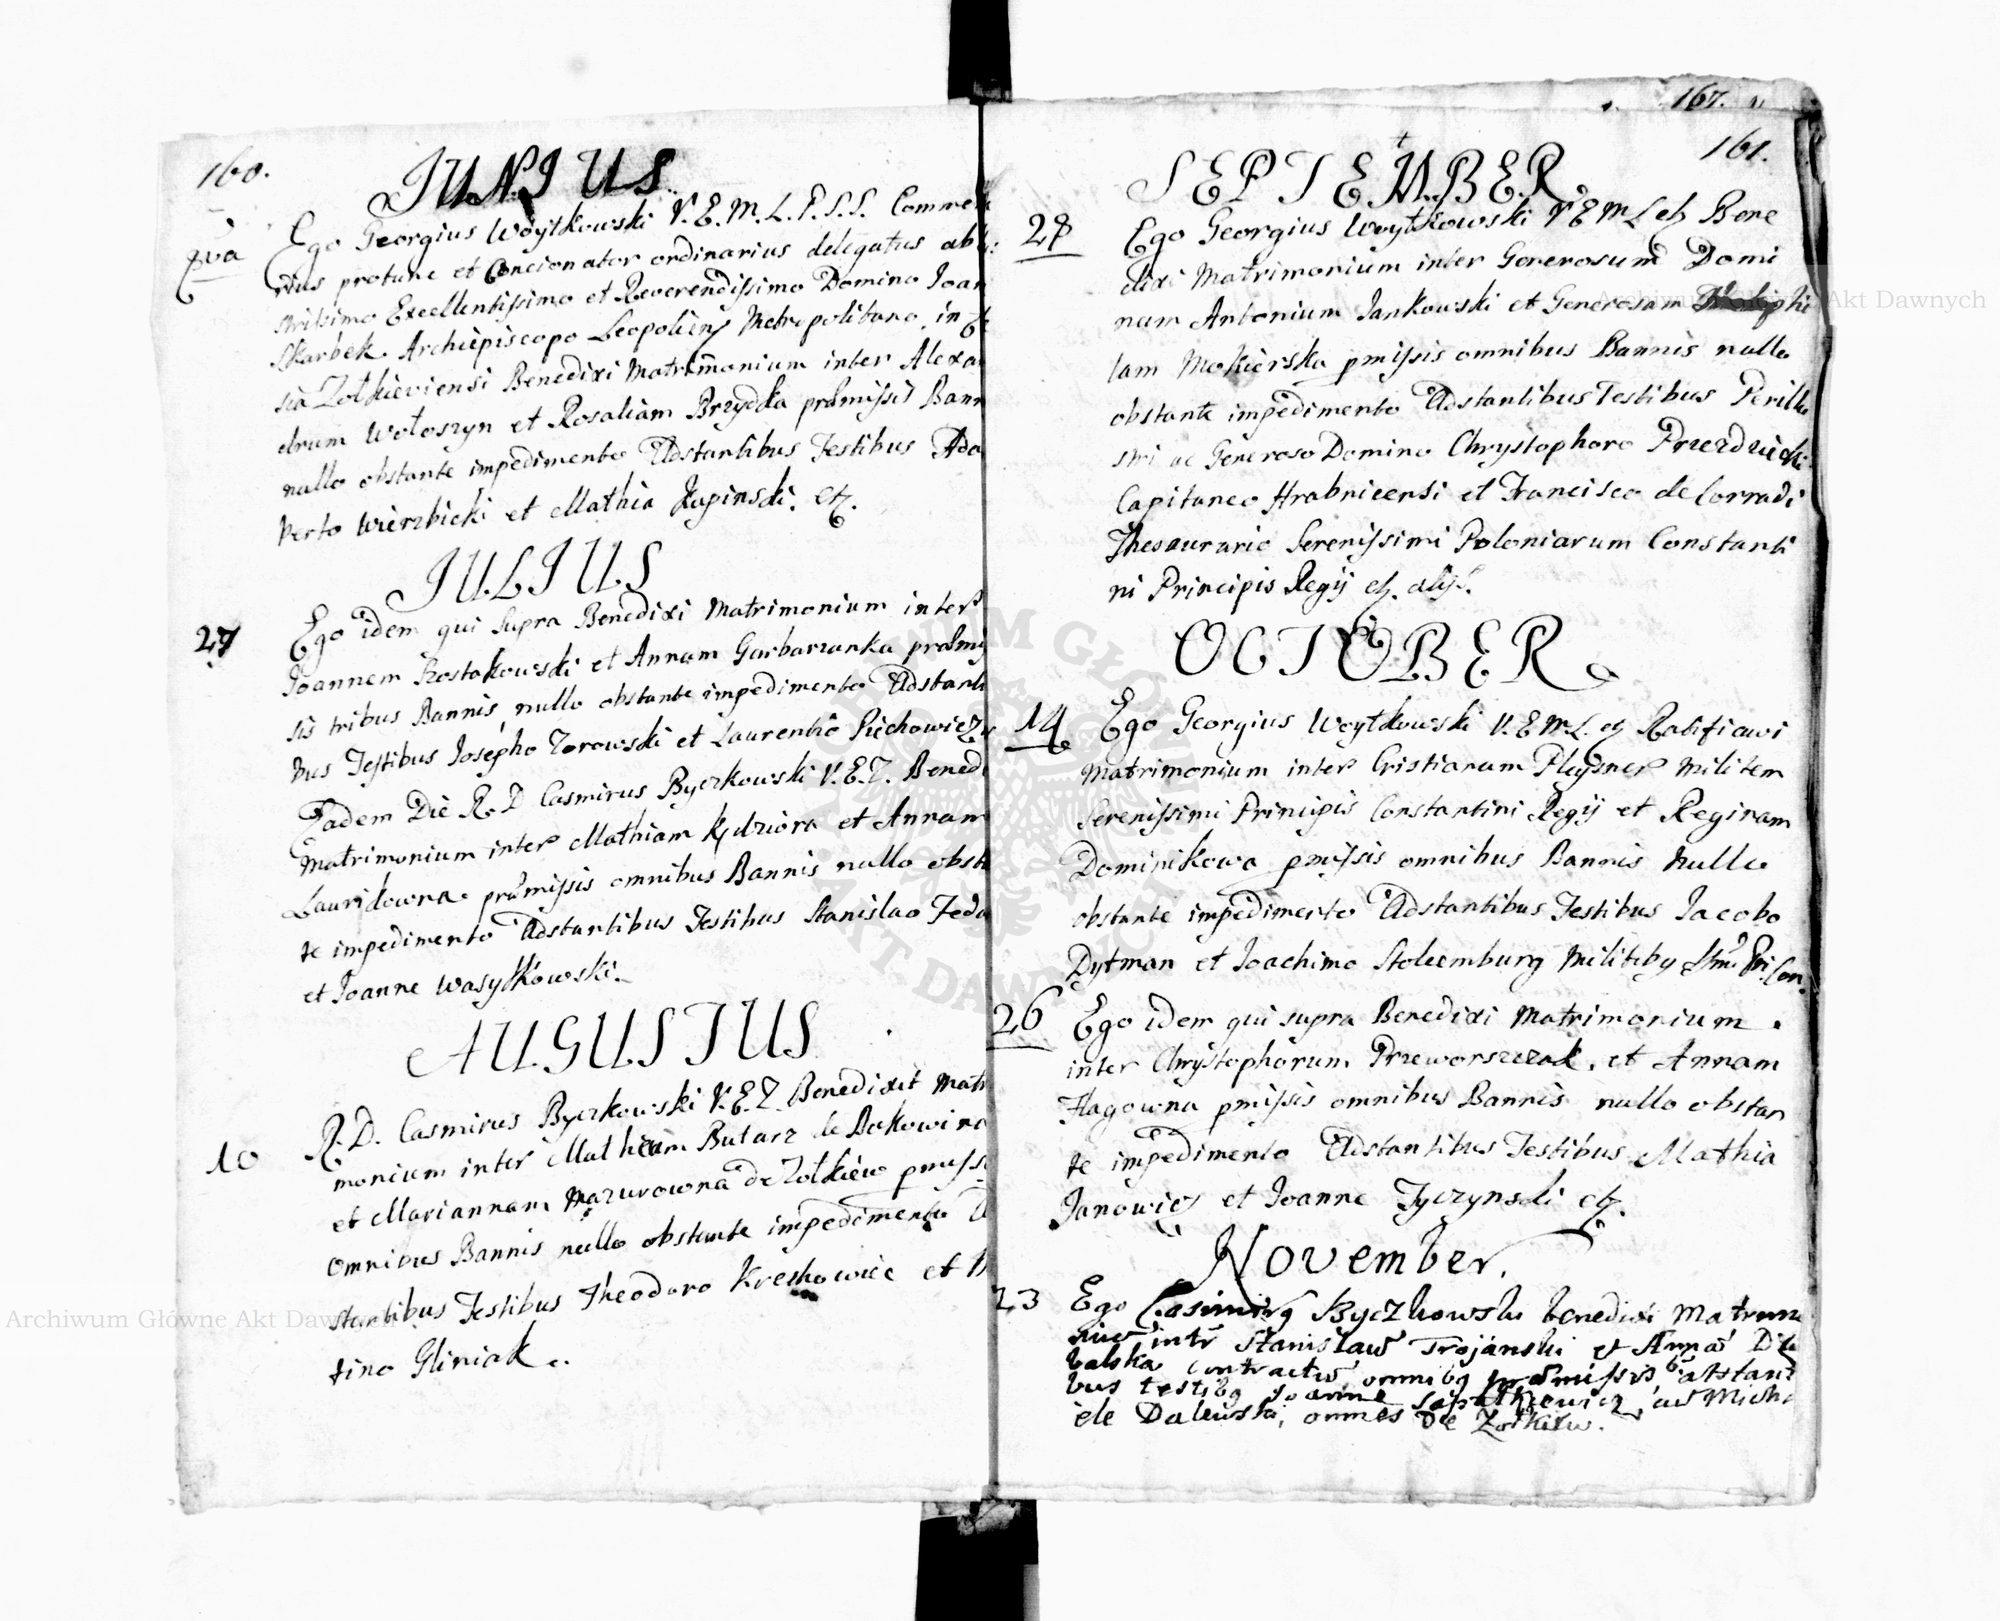 160.
JUNIUS
8va
Ego Georgius Woytkowski V.E.M.L.P.S.S. Comme
rius protunc et Concionator ordinarius delegatus ab
strissimo Excellentissimo et Reverendissimo Domino Joan
Skarbek Archiepiscopo Leopoliens Metropolitano, in
sia Zolkieviensi Benedixi Matrimonium inter Alexa
drum Wołoszyn et Rosaliam Brzydka præmissis Bann
nullo obstante impedimento Adstantibus Testibus Ada
perto Wierzbicki et Mathia Kupinski. etc.
JULIUS
27
Ego idem qui supra Benedixi Matrimonium inter
Joannem Rostakowski et Annam Garbarzanka præmis
sis tribus Bannis nullo obstante impedimento Adstanti
bus Testibus Josepho Torowski et Laurentio Piechowicz
Eadem Die R. D Casmirus Byczkowski V.E.Z. Bened
Matrimonium inter Mathiam Kędziora et Annam
Lauridowna præmissis omnibus Bannis nullo obst
te impedimento Adstantibus Testibus Stanislao Fedo
et Joanne Wasylkowski.
AUGUSTUS
10
R. D. Casmirus Byczkowski V.E.Z. Benedixit Matr
monium inter Mathiam Butarz de Bukowina
et Mariannam Mazurowna de Zolkiew pmiss
omnibus Bannis nullo obstante impedimento A
stantibus Testibus Theodoro Kreskowiec et
tino Gliniak.
167.
161.
SEPTEMBER
28
Ego Georgius Woytkowski V E M L etz Bene
dixi Matrimonium inter Generosum Domi
num Antonium Jankowski et Generosam
lam Mokierska pmissis omnibus Bannis nullo
obstante impedimento Adstantibus Testibus Perillu
stri ac Generoso Domino Chrystophoro Przezdziecki
Capitaneo Hrabnicensi et Francisco de Corradi
Thesaurario Serenissimi Poloniarum Constanti
ni Principis Regij etz. alys.
OCTOBER
14
Ego Georgius Woytkowski V.E.M.L. etz Ratificavi
Matrimonium inter Cristianum Pleysner Militem
Serenissimi Principis Constantini Regij et Reginam
Dominikowa pmissis omnibus Bannis nullo
obstante impedimento Adstantibus Testibus Jacobo
Dytman et Joachimo Stolcemburg Militibq Smi Pri Con.
26
Ego idem qui supra Benedixi Matrimonium
inter Chrystophorum Przeworszczak. et Annam
Flagowna pmissis omnibus Bannis nullo obstan
te impedimento Adstantibus Testibus Mathia
Janowicz et Joanne Tyczynski etz.
November.
23
Ego Casimirq Byczkowski benedixi Matrimo
niu intr Stanislau Trojanski et Anna
balska contractu omnibq præmissis adstanti
bus testibq Joanne Lopatkiewicz, ac Micha
ele Dalewski, omnes de Zolkiew.
Archiwum Główne Akt Dawnych
ARCHIWUM GŁÓWNE AKT DAWNYCH
Archiwum Główne Akt Dawnych